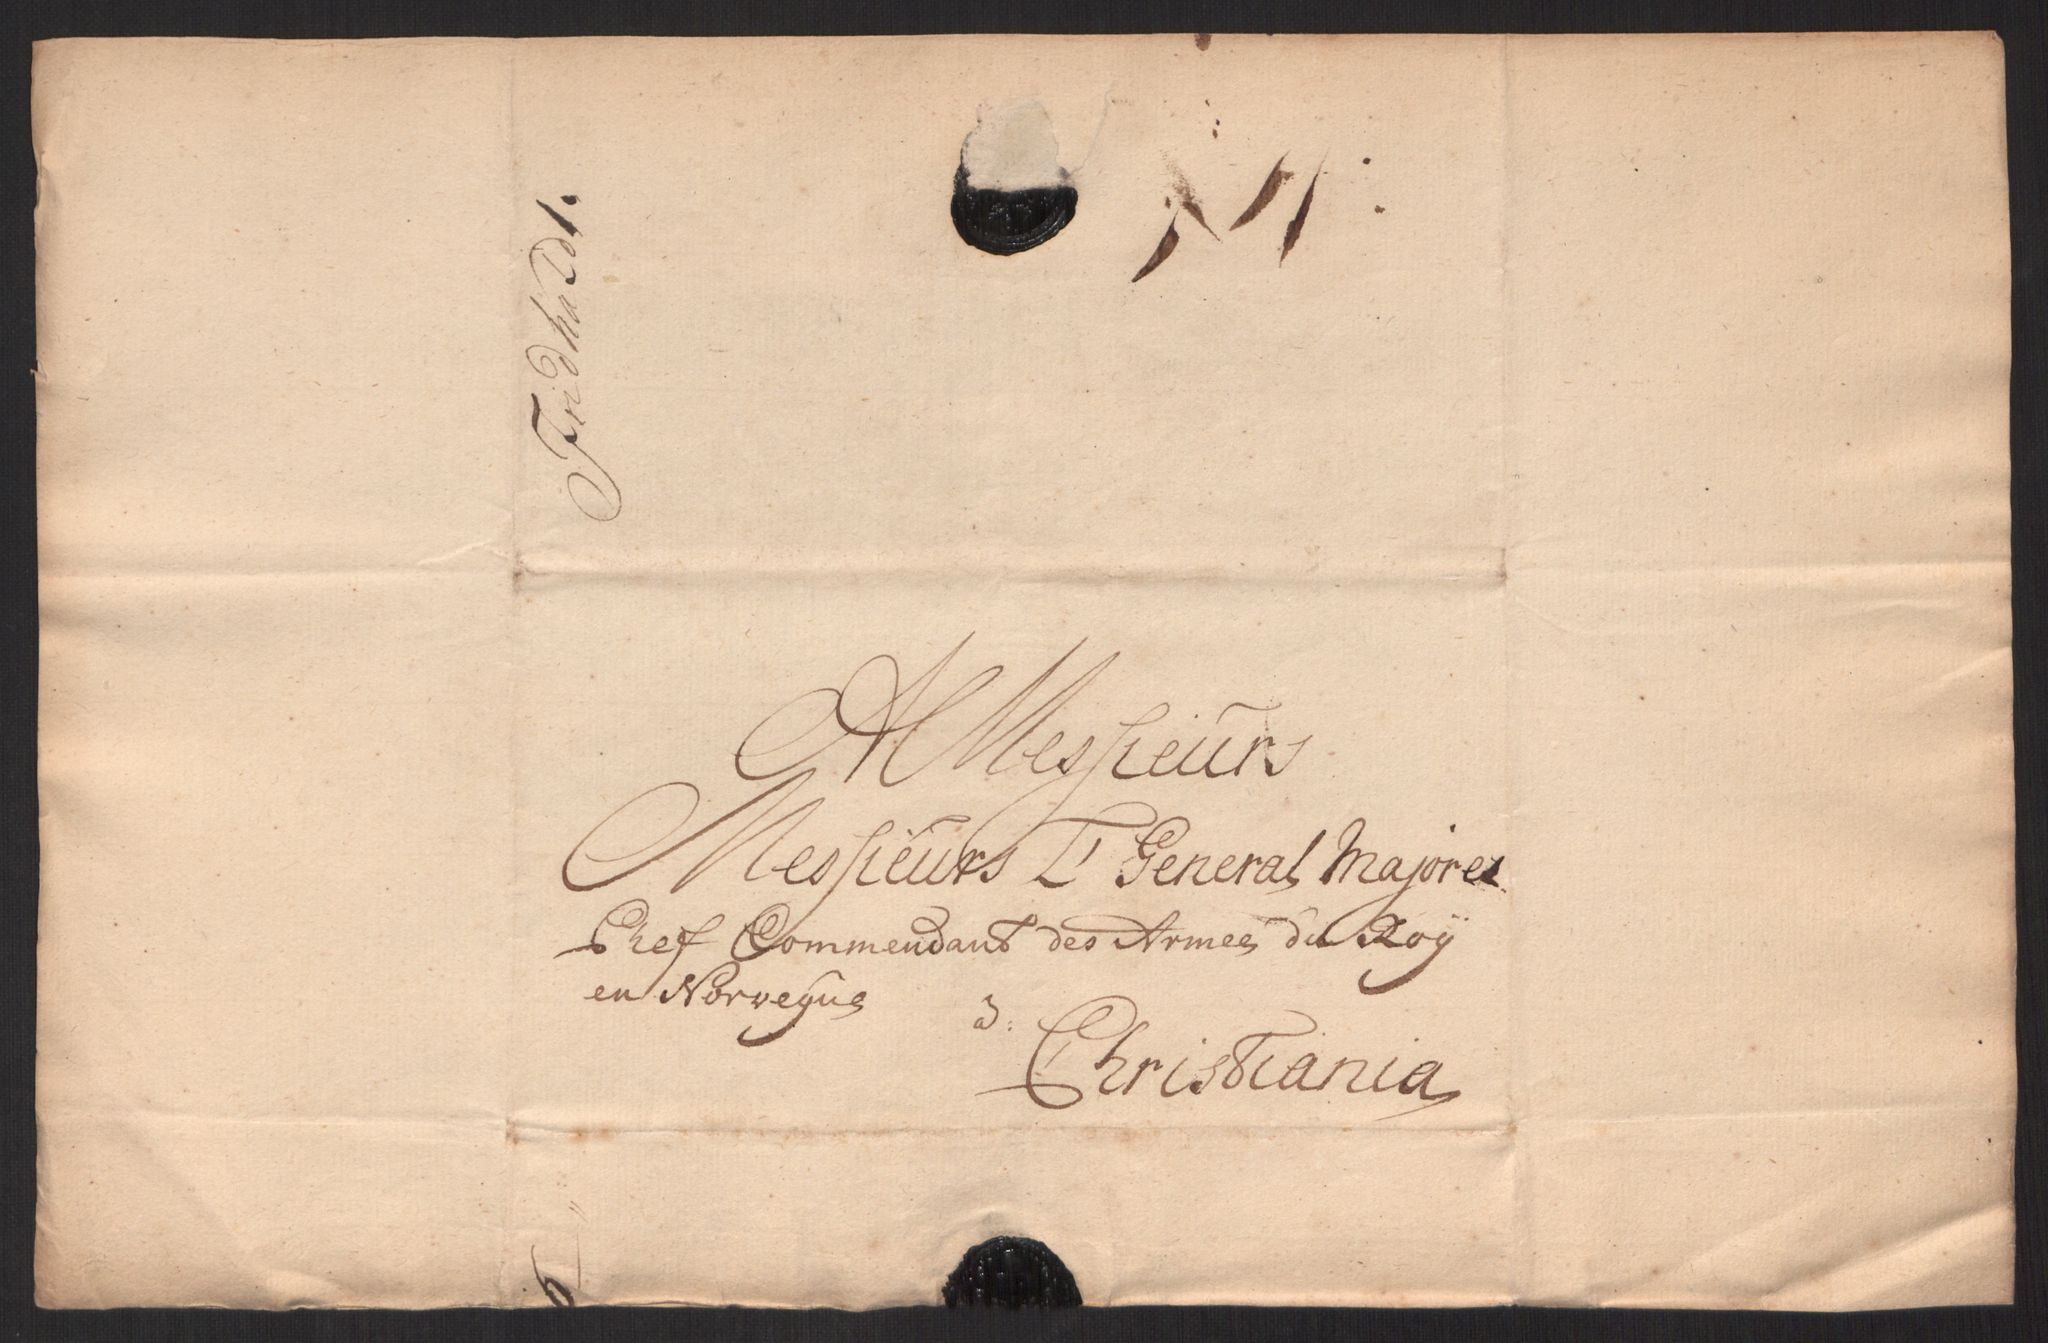 Fridhaldt.
A Messieurs
Messieurs L General Majores
Chef Commendant des Armees du Roÿ
en Norvegue
à
Christiania